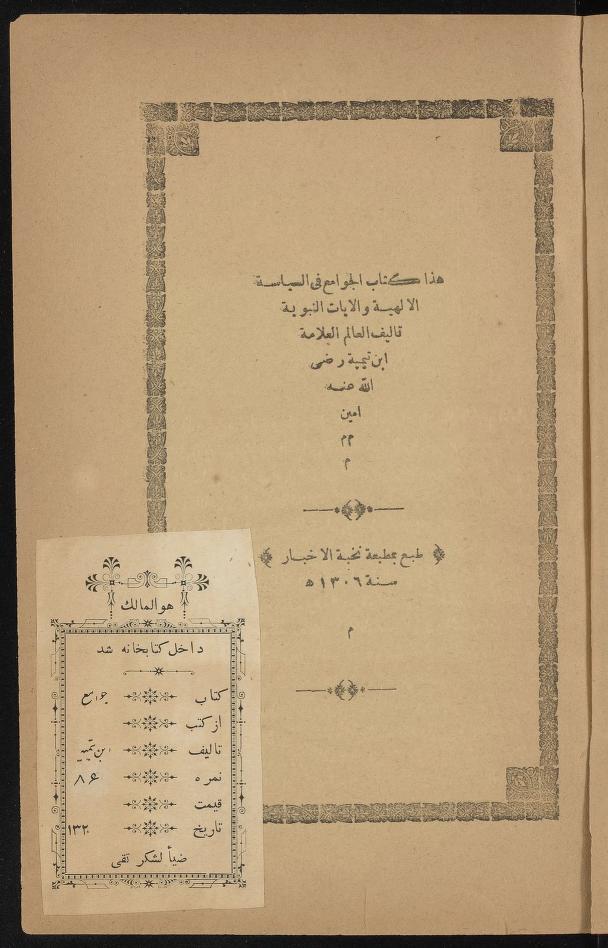 هذا كتاب الجوامع فى السياسة
الالهية والايات النبوية
تاليف العالم العلامة
ابن تيمية رضى
الله عنه
امين
م م
م
طبع بمطبعة نخبة الاخبار
سنة ١٣٠٦ ه
م
هو المالك
داخل كتابخانه شد
كتاب جوامع
از كتب
تاليف ابن تیمیه
نمره ٨۶
قيمت
تاريخ ١٣٢
ضيأ لشكر تقى